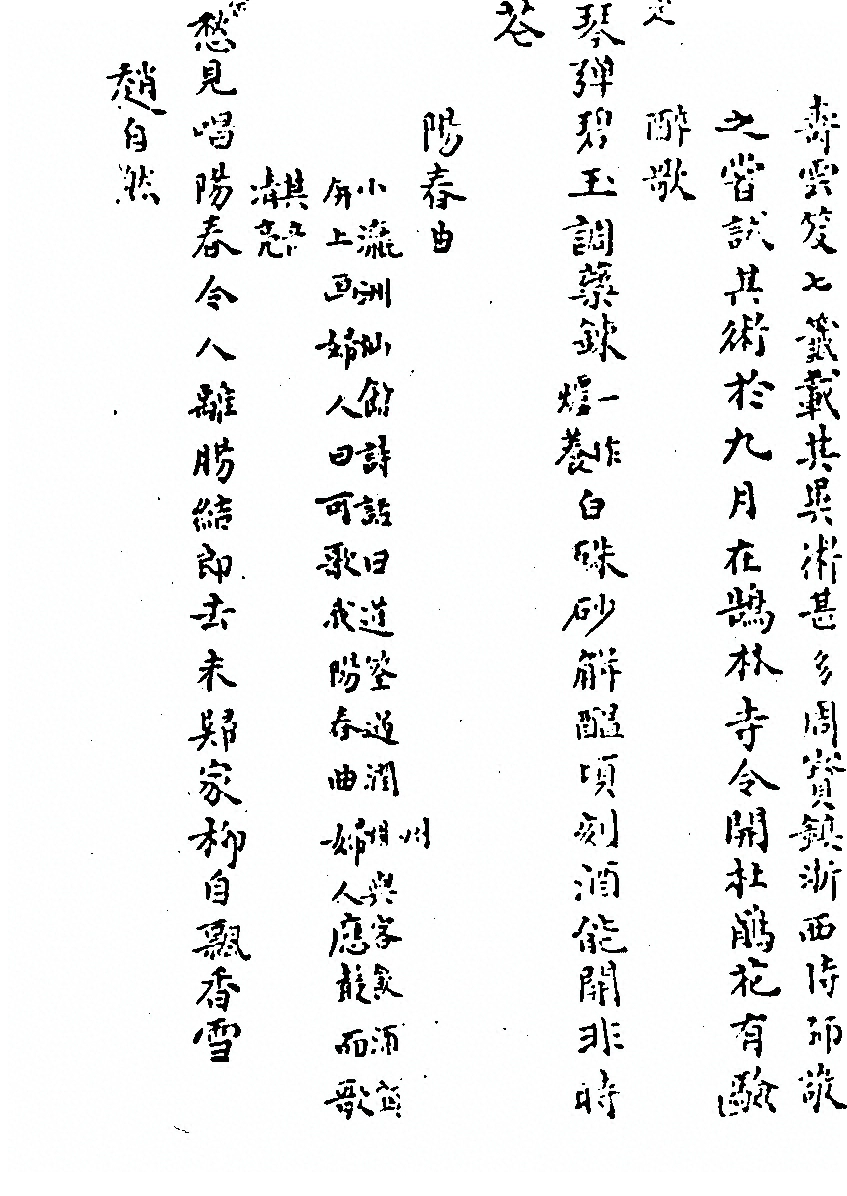 壽雲笈七籤載其異術甚多周寳鎮浙西待師敬
之嘗試其術於九月在鶴林寺令開杜鵑花有驗
醉歌
琴彈碧玉調藥鍊一作爐養白硃砂解醖頃刻酒能開非時
花
陽春曲
小瀛洲仙館詩話曰道筌過潤州與客飲酒
屏上画婦人曰可歌我陽春曲婦人應聲而歌
其音清亮
愁見唱陽春令人離腸結郎去未歸家柳自飄香雪
趙自然